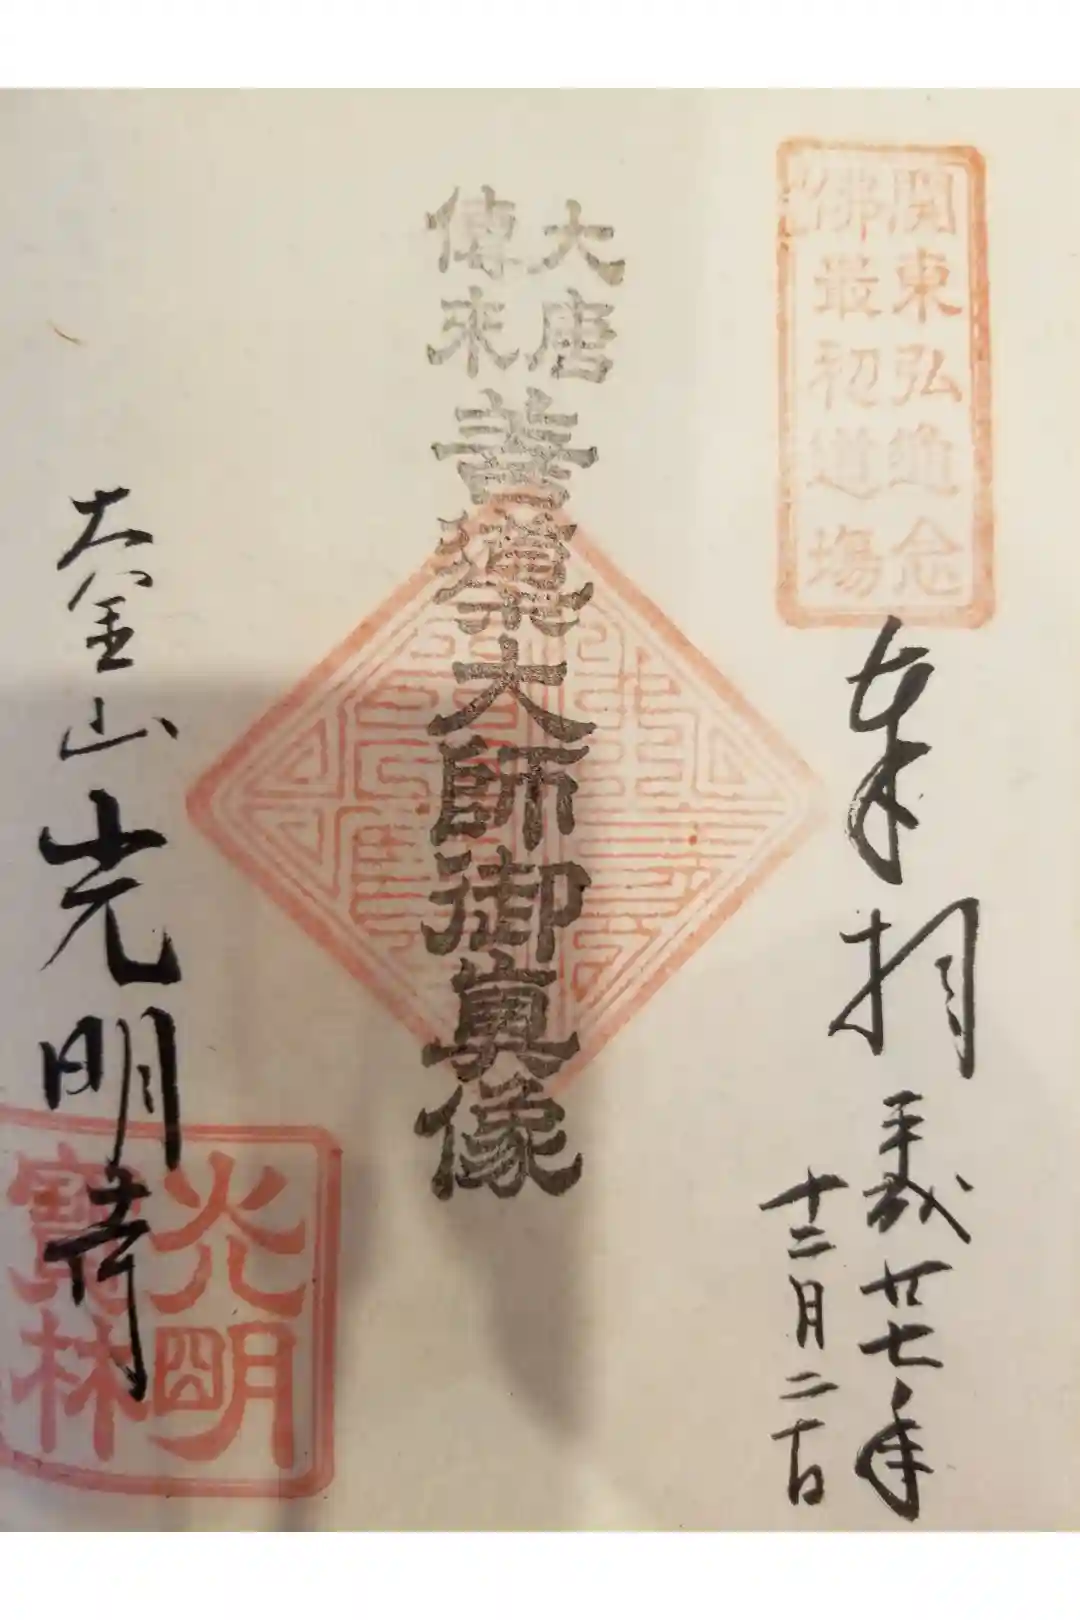 関東弘通念
佛最初道場
奉拝
平成廿七年
十二月二十日
大唐
傳來
善導大師御眞像
大釜山光明寺
光明
寳林